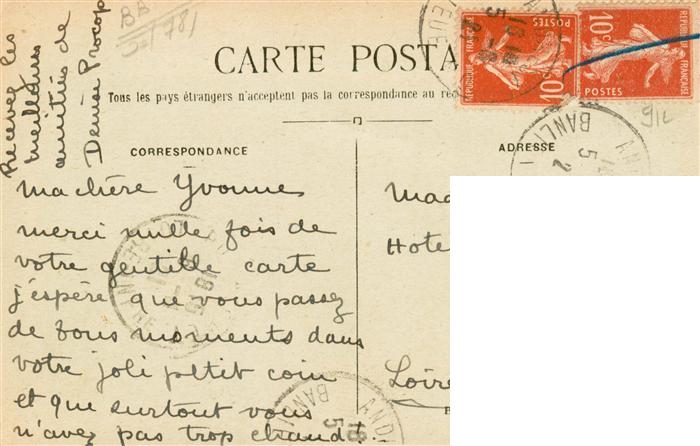 Recevez les
meilleures
amitiés de
Denise Procop
BB
CARTE POSTA
Tous les pays étrangers n'acceptent pas la correspondance au rec
CORRESPONDANCE
ADRESSE
RÉPUBLIQUE FRANÇAISE
10c
POSTES
10c
POSTES
RÉPUBLIQUE FRANÇAISE
ma chère Yvonne
merci mille fois de
votre gentille carte
j'espère que vous passez
de bons moments dans
votre joli petit coin
et que surtout vous
n'avez pas trop chaud!
Mad
Hote
Loire
AND
BANL
5
AND
BAN
5